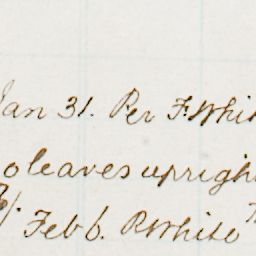 Jan 31. Per F. Whi
leaves uprigh
Feb 6. R White